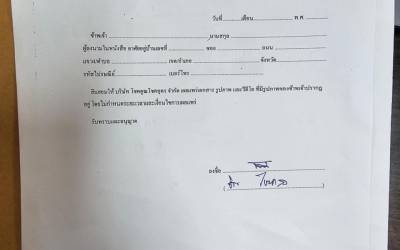 วันที่..........เดือน..............................พ.ศ. ..........
ข้าพเจ้า..............................นามสกุล..............................
ผู้ลงนามในหนังสือ อาศัยอยู่บ้านเลขที่..........ซอย..........ถนน..........
แขวง/ตำบล....................เขต/อำเภอ....................จังหวัด....................
รหัสไปรษณีย์....................เบอร์โทร....................
ยินยอมให้ บริษัท โชคคูณโชคอุดร จำกัด เผยแพร่เอกสาร รูปภาพ และวีดีโอ ที่มีรูปภาพของข้าพเจ้าปรากฏ
อยู่ โดยไม่กำหนดระยะเวลาและเงื่อนไขการเผยแพร่
รับทราบและอนุญาต
ลงชื่อ
( )